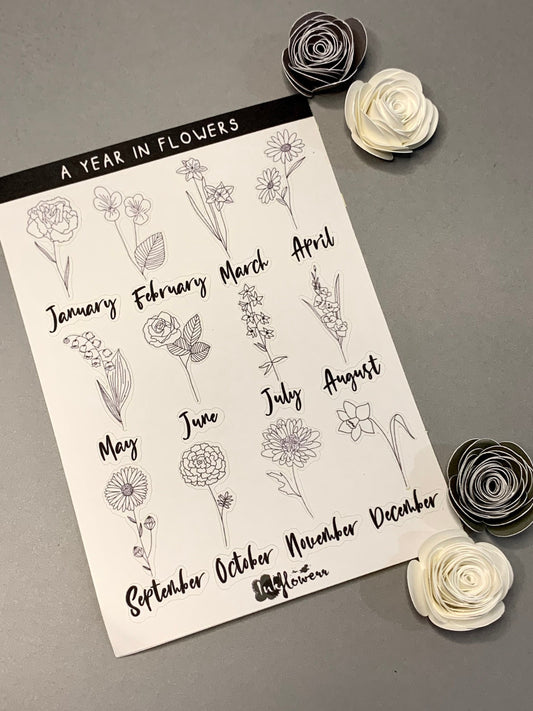 A YEAR IN FLOWERS
January February March April
May June July August
September October November December